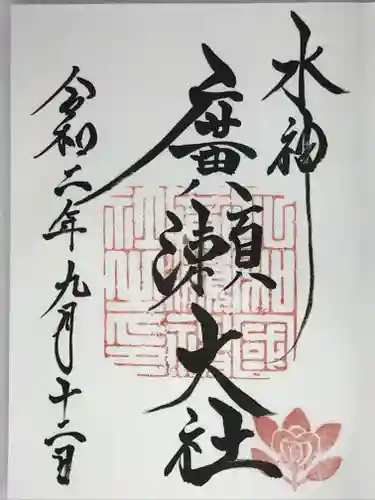 水神
廣瀬大社
令和二年九月十二日